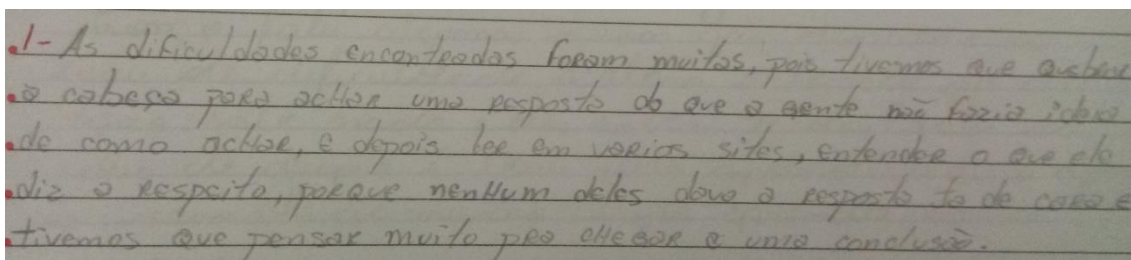 1- As dificuldades encontradas foram muitas, pois tivemos que quebrar
a cabeça para achar uma resposta do que a gente não fazia ideia
de como achar, e depois ler em varios sites, entender o que ele
diz a respeito, porque nenhum deles dava a resposta to de cara e
tivemos que pensar muito pra chegar a uma conclusão.